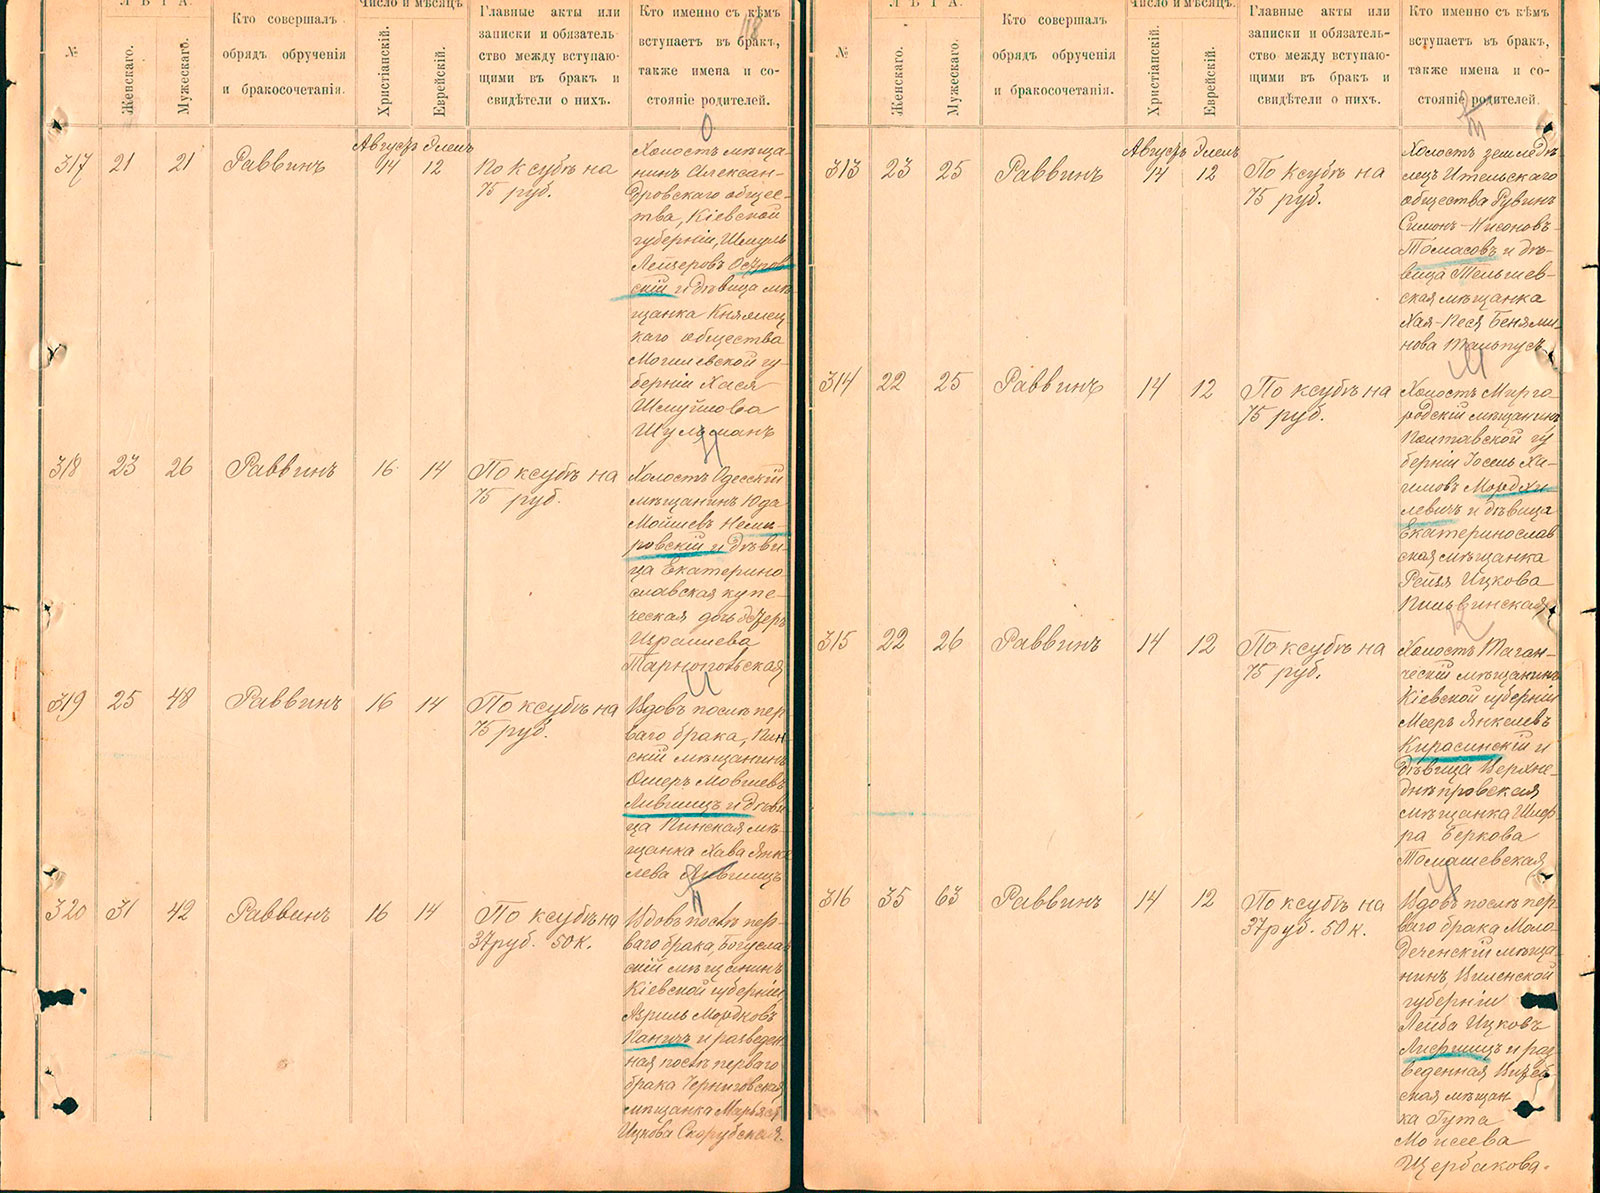 ЛѢТА.
Число и мѣсяцъ.
№
Женскаго.
Мужескаго.
Кто совершалъ
обрядъ обрученія
и бракосочетанія.
Христіанскій.
Еврейскій.
Главные акты или
записки и обязатель
ство между вступаю-
щими въ бракъ и
свидѣтели о нихъ.
Кто именно съ кѣмъ
вступаетъ въ бракъ,
также имена и со-
стояніе родителей.
118
О
317 21 21 Раввинъ
Августъ Элелъ
14 12
По ксубѣ на
75 руб.
Холостъ мѣща-
нинъ Алексан-
дровскаго общес-
тва, Кіевской
губерніи, Шмуль
Лейзеровъ
скій и дѣвица мѣ
щанка Княжец-
каго общества
Могилевской гу-
берніи Хася
Шмуйлова
Шульманъ
Н
318 23 26 Раввинъ 16 14
По ксубѣ на
75 руб.
Холостъ Одесскій
мѣщанинъ Юда
Мойшевъ Неми-
ровскій и дѣви-
ца Екатерино-
славская купе-
ческая дочь Эстеръ
Израилева
Тарнопольская
319 25 48 Раввинъ 16 14
По ксубѣ на
75 руб.
Вдовъ послѣ пер-
ваго брака, Пин-
скій мѣщанинъ
Ошеръ Мовшевъ
Лившицъ и дѣви
ца Пинская мѣ-
щанка Хава Янке
лева Лившицъ
320 31 42 Раввинъ 16 14
По ксубѣ на
37 руб. 50 к.
Вдовъ послѣ пер-
ваго брака, Богуслав
скій мѣщанинъ
Кіевской губерніи,
Азриль Мордковъ
Паничъ и разведен
ная послѣ перваго
брака Черниговская
мѣщанка Марьяся
Ицкова Скорубская.
ЛѢТА.
Число и мѣсяцъ.
№
Женскаго.
Мужескаго.
Кто совершалъ
обрядъ обрученія
и бракосочетанія.
Христіанскій.
Еврейскій.
Главные акты или
записки и обязатель-
ство между вступаю-
щими въ бракъ и
свидѣтели о нихъ.
Кто именно съ кѣмъ
вступаетъ въ бракъ,
также имена и со-
стояніе родителей.
313 23 25 Раввинъ
Августъ Элелъ
14 12
По ксубѣ на
75 руб.
Холостъ земледѣ
лецъ
общества Рувинъ
Симонъ-Нисоновъ
Томасовъ и дѣ-
вица Тельшев-
ская мѣщанка
Хая-Песя Беньями-
нова Тальпусъ
М
314 22 25 Раввинъ 14 12
По ксубѣ на
75 руб.
Холостъ Мирго
родскій мѣщанинъ
Полтавской гу
берніи Іосель Ха-
имовъ Мордхи
левичъ и дѣвица
Екатеринослав
ская мѣщанка
Рейзя Ицкова
Пильвинская
К
315 22 26 Раввинъ 14 12
По ксубѣ на
75 руб.
Холостъ Таган-
ческій мѣщанинъ
Кіевской губерніи
Мееръ Янкелевъ
Кирасинскій и
дѣвица Верхне-
днѣпровская
мѣщанка Шиф
ра Беркова
Томашевская
316 35 63 Раввинъ 14 12
По ксубѣ на
37 руб. 50 к.
Вдовъ послѣ пер
ваго брака Моло-
деченскій мѣща-
нинъ, Виленской
губерніи
Лейба Ицковъ
Лифшицъ и раз
веденная Витеб
ская мѣщан
ка Гута
Моисеева
Щербакова.